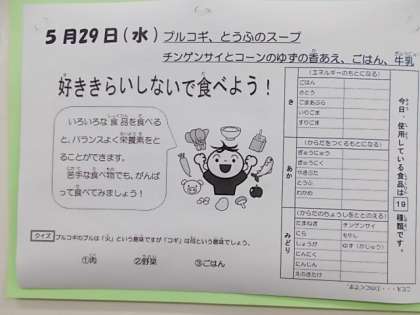 5月29日（水）
プルコギ、とうふのスープ
チンゲンサイとコーンのゆずの香あえ、ごはん、牛乳
好ききらいしないで食べよう！
いろいろな食品を食べる
と、バランスよく栄養素をと
ることができます。
苦手な食べ物でも、がんば
って食べてみましょう！
クイズ
プルコギのプルは「火」という意味ですが「コギ」は何という意味でしょう。
①肉 ②野菜 ③ごはん
今日、使用している食品は19種類です。
き
（エネルギーのもとになる）
ごはん
さとう
ごまあぶら
いりごま
すりごま
あか
（からだをつくるもとになる）
ぎゅうにゅう
ぎゅうにく
やきぶた
とうふ
わかめ
みどり
（からだのちょうしをととのえる）
たまねぎ チンゲンサイ
にら もやし
しょうが ゆず（かじゅう）
にんにく
にんじん
えのきたけ